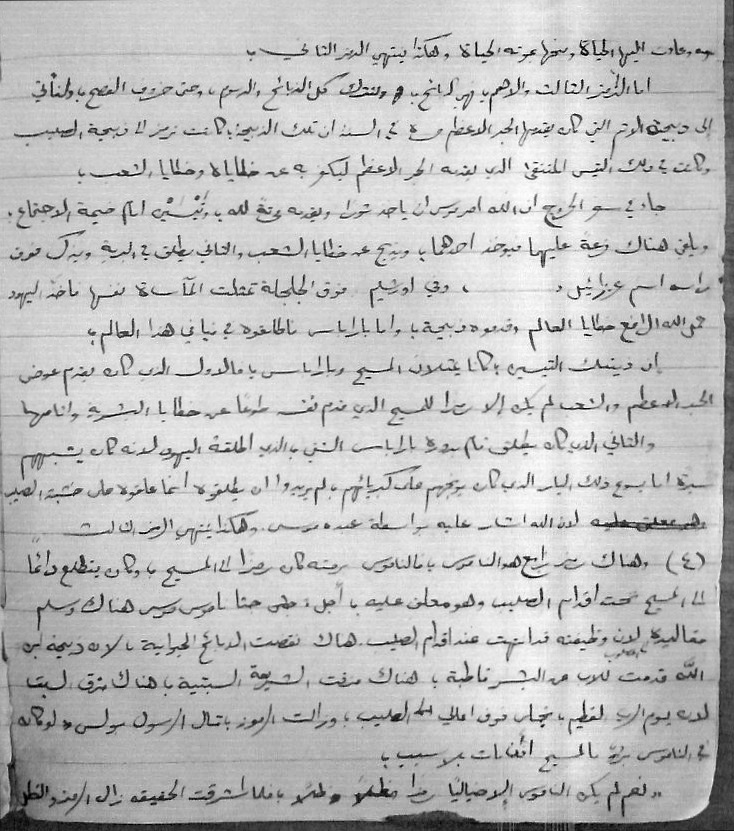 وعادت اليها الحياة ومنحها عربه الحياة وهكذا ينتهي الرمز الثاني
اما الرمز الثالث والاهم فهو الذبائح ولنترك كل الذبائح والرسوم وحتى خروف الفصح ولنأتي
إلى ذبيحة الاثم التي كان يقدمها الحبر الاعظم مرة في السنة ان تلك الذبيحة كانت ترمز الى ذبيحة الصليب
وكانت في ذلك التيس المنتقى الذي يقدمه الحبر الاعظم ليكفر به عن خطاياه وخطايا الشعب
جاء في سفر الخروج ان الله امر موسى ان ياخذ ثورا ويقدمه لله وتيسين امام خيمة الاجتماع
ويلقى هناك قرعة عليهما فيؤخذ احدهما ويذبح عن خطايا الشعب والثاني يطلق في البرية ويترك فوق
راسه اسم عزازئيل وفي اورشليم فوق الجلجلة تمثلت المأساة نفسها فأخذ اليهود
حمل الله الرافع خطايا العالم وقدموه ذبيحة واما باراباس فاطلقوه في فيافي هذا العالم
إن ذينك التيسين كانا يمثلان المسيح وباراباس فالاول الذي كان يقدم عوض
الحبر الاعظم والشعب لم يكن إلا رمزا للمسيح الذي قدم نفسه طوعا عن خطايا البشرية واثامها
والثاني الذي كان يطلق تم بدوره باراباس الشقي الذي اطلقه اليهود لانه كان يشبههم
سيرة اما يسوع ذلك البار الذي كان يوبخهم على كبريائهم لم يريدوا ان يطلقوه انما علقوه على خشبة الصليب
لان الله اشار عليه بواسطة عبده موسى وهكذا ينتهي الرمز الثالث
(٤) وهناك رمز رابع هو الناموس فالناموس برمته كان رمزا الى المسيح وكان يتطلع دائما
الى المسيح تحت اقدام الصليب وهو معلق عليه أجل حتى جثا ناموس موسى هناك وسلم
مقاليده لان وظيفته قد انتهت عند اقدام الصليب هناك نقضت الذبائح الحيوانية لان ذبيحة ابن
الله قدمت للاب عن البشر قاطبة هناك مزقت الشريعة السبتية هناك مزق السبت
لان يوم الرب العظيم تجلى فوق اعالي الصليب وزالت الرموز قال الرسول بولس لو كان
في الناموس بر فالمسيح إذا مات بلا سبب
نعم لم يكن الناموس إلا خيالا رمزا وظلا فلما اشرقت الحقيقة زال الرمز والظل